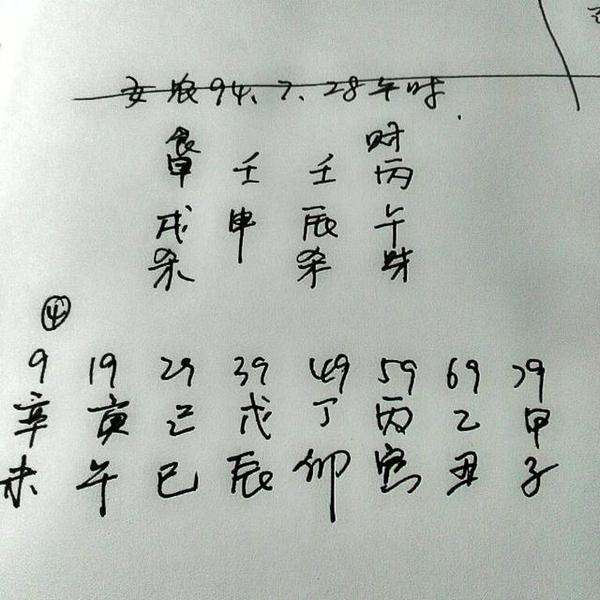 女农94.7.28午时.
食 财
甲 壬 壬 丙
戌 申 辰 午
杀 杀 财
④
9 19 29 39 49 59 69 79
辛 庚 己 戊 丁 丙 乙 甲
未 午 巳 辰 卯 寅 丑 子